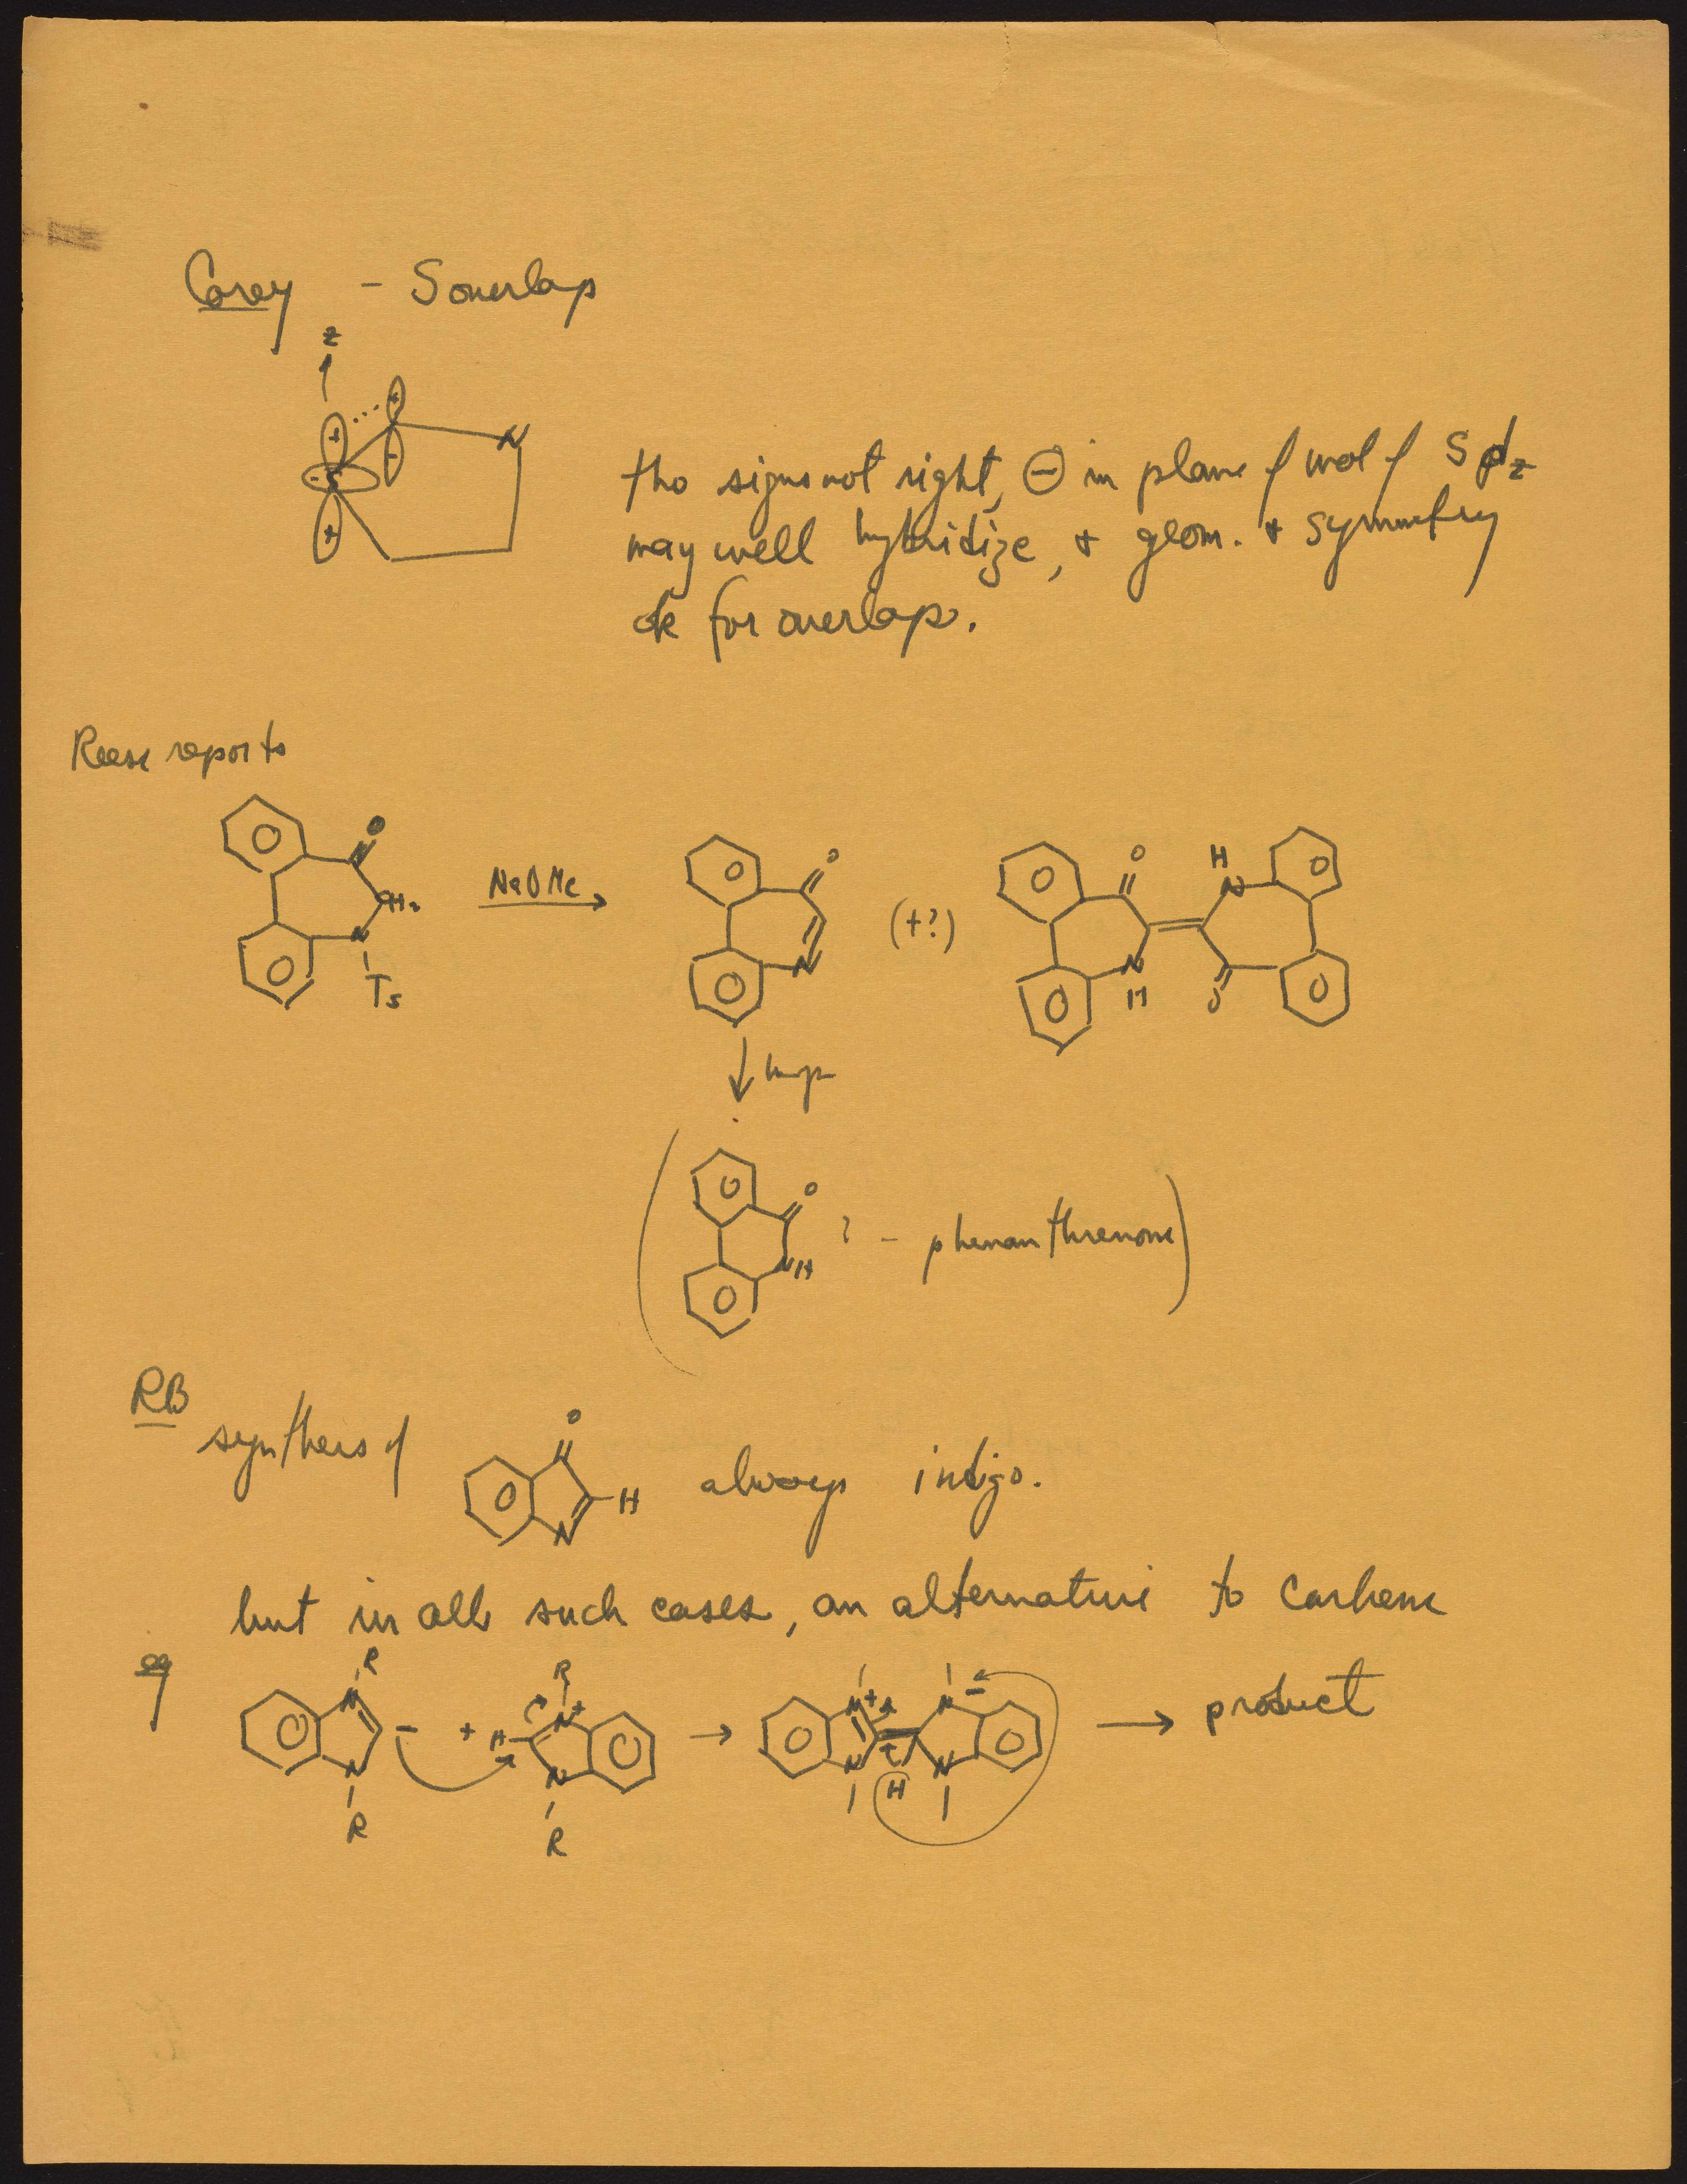 Corey - S overlap
z
+ + N
- S -
+
tho signs not right, ⊖ in plane of mol of S dz
may well hybridize, + geom. + symmetry
ok for overlap.
Reese reports
O
CH2
N
Ts
NaOMe
O
N
(+?)
O H
N
N
H O
O
NH
? - phenanthrenone
RB
synthesis of
O
H
N
always indigo.
but in all such cases, an alternative to carbene
eg
R R
N - + H N+ → N+ N - → product
N N N H N
R R